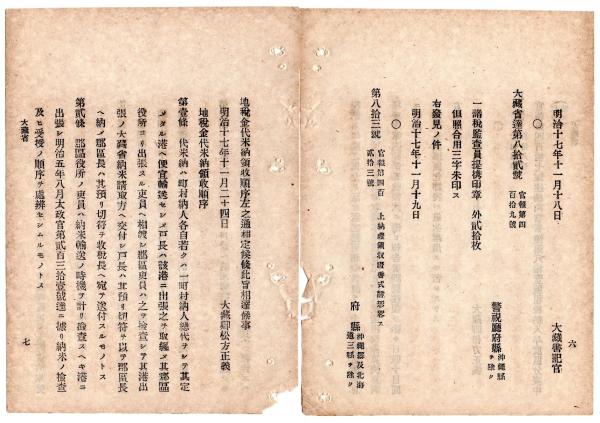 六
一明治十七年十一月十八日
大藏書記官
〇
大藏省達第八拾貳號
官報第四
百拾九號
警視廳府縣
沖繩縣
ヲ除ク
一諸税監査員提携印章 外貳拾枚
但照合用三字朱印ス
右發見ノ件
明治十七年十一月十九日
〇
第八拾三號
官報第四百
貳拾三號
上納證領収證書式
府縣
沖繩縣及北海
道三縣ヲ除ク
地税金代米納領收順序左之通相定候條此旨相達候事
明治十七年十一月二十四日
大藏卿松方正義
地税金代米納領收順序
第壹條 代米納ハ町村納人各自若クハ一町村納人總代ヲシテ其定
メタル港ヘ便宜輸送セシメ戸長ハ該港ニ出張之ヲ取纒メ其郡區
役所ヨリ出張スル吏員ヘ相渡シ郡區吏員ハ之ヲ檢査シテ其港出
張ノ大藏省納米請取方ヘ交付シ戸長ハ其預リ切符ヲ以テ郡區長
ヘ納メ郡區長ハ其預リ切符ヲ收税長ヘ宛テ送付スルモノトス
第貳條 郡區役所ノ吏員ハ納米輸送ノ時機ヲ計リ檢査スヘキ港ニ
出張シ明治五年八月太政官第貳百三拾壹號達ニ據リ納米ノ檢査
及ヒ受授ノ順序ヲ處辨セシムルモノトス
大藏省
七